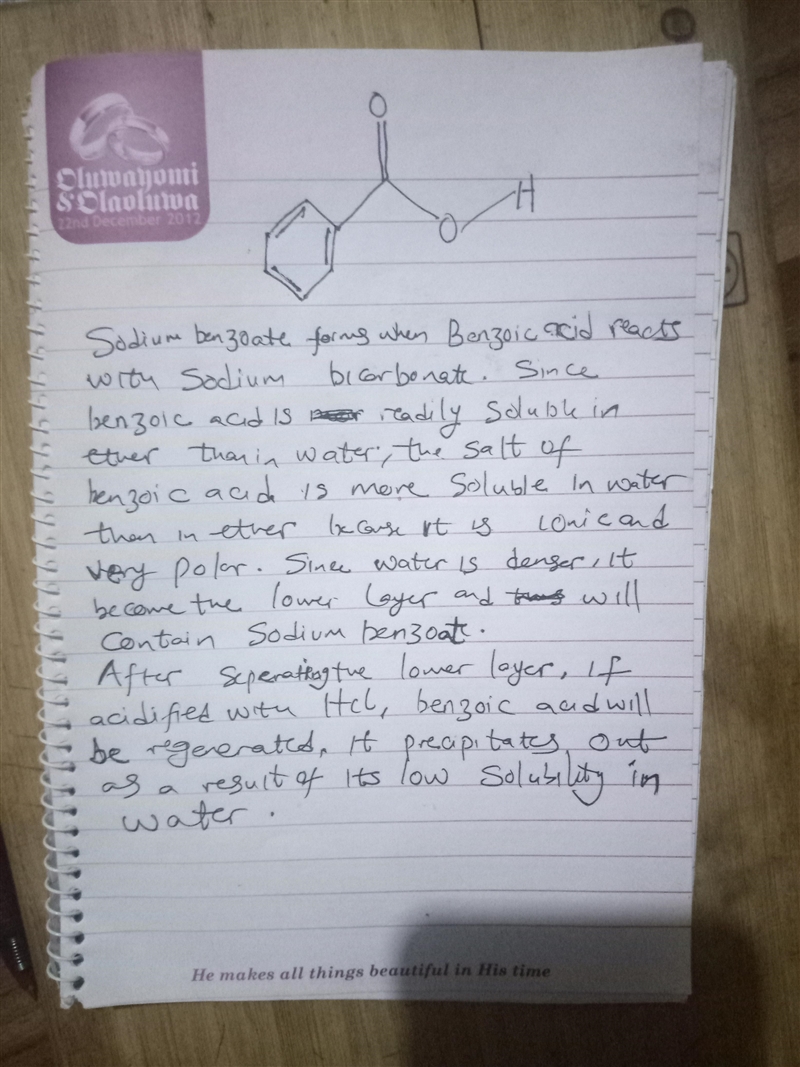 Oluwayomi
& Olaoluwa
22nd December 2012
O
O
H
Sodium benzoate forms when Benzoic acid reacts
with Sodium bicarbonate. Since
benzoic acid is readily soluble in
ether than in water, the salt of
benzoic acid is more soluble in water
than in ether because it is ionic and
very polar. Since water is denser, it
become the lower layer and will
contain Sodium benzoate.
After seperating the lower layer, if
acidified with Hcl, benzoic acid will
be regenerated, it precipitates out
as a result of its low solubility in
water.
He makes all things beautiful in His time